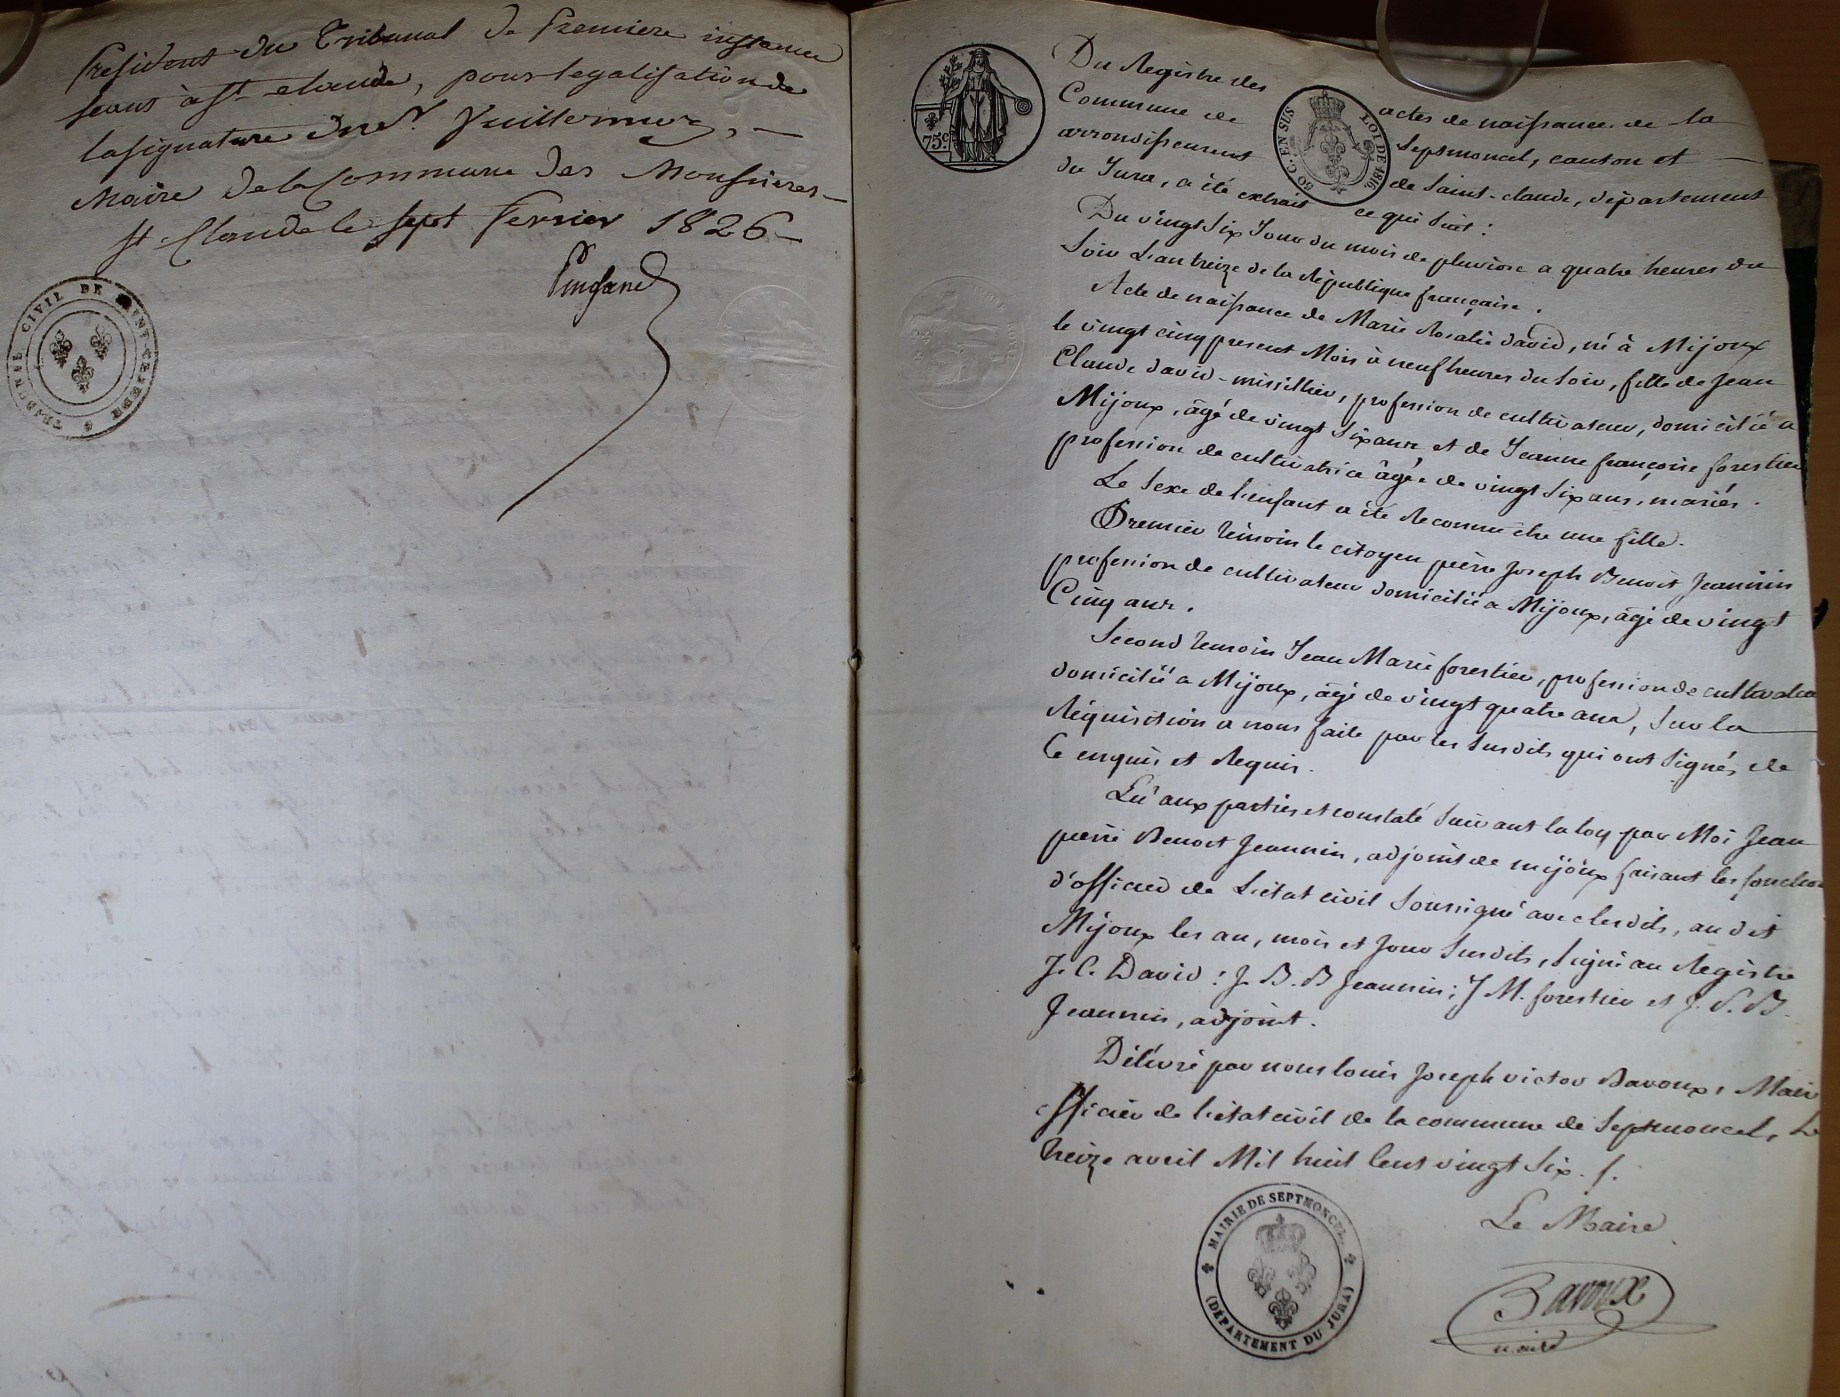 President du Tribunal de Premiere instance
seant à St. claude, pour legalisation de
la signature du Sr. Vuillermoz, —
Maire de la Commune des Moussieres —
St. Claude le sept fevrier 1826 —
TRIBUNAL CIVIL DE SAINT-CLAUDE
75 c.
50 C. EN SUS
LOI DE 1816
Du Registre des actes de naissance de la
Commune de Septmoncel, canton et —
arrondissement de Saint-claude, département
du Jura, a été extrait ce qui suit :
Du vingt six Jour du mois de pluviose a quatre heures du
Soir L'an treize de la République française.
Acte de naissance de Marie Rosalie david, né à Mijoux
le vingt cinq present Mois à neuf heures du Soir, fille de Jean
Claude david-missillier, profession de cultivateur, domicilié a
Mijoux, âgé de vingt Six ans et de Jeanne françoise forestier
profession de cultivatrice âgée de vingt Six ans, mariés.
Le Sexe de l'enfant a été Reconnu être une fille.
Premier témoin le citoyen pierre Joseph Benoit Jeannin
profession de cultivateur domicilié a Mijoux, âgé de vingt
Cinq ans.
Second temoin Jean Marie forestier, profession de cultivateur
domicilié a Mijoux, âgé de vingt quatre ans, Sur la —
Réquisition a nous faite par les Susdits qui ont Signés de
Ce enquis et Requis.
Lu aux parties et constaté Suivant la loy par Moi Jean
pierre Benoit Jeannin, adjoint de mijoux faisant les fonction
d'officier de L'etat civil Soussigné avec lesdits, au dit
Mijoux les an, mois et Jour Susdits, Signé au Registre
J. C. David : J. B. B Jeannin ; J M. forestier et J. P. B.
Jeannin, adjoint.
Délivré par nous louis Joseph victor Bavoux, Maire
officier de l'etat civil de la commune de Septmoncel, Le
treize avril Mil huit Cent vingt Six. /.
Le Maire
MAIRIE DE SEPTMONCEL
(DÉPARTEMENT DU JURA)
Bavoux
maire